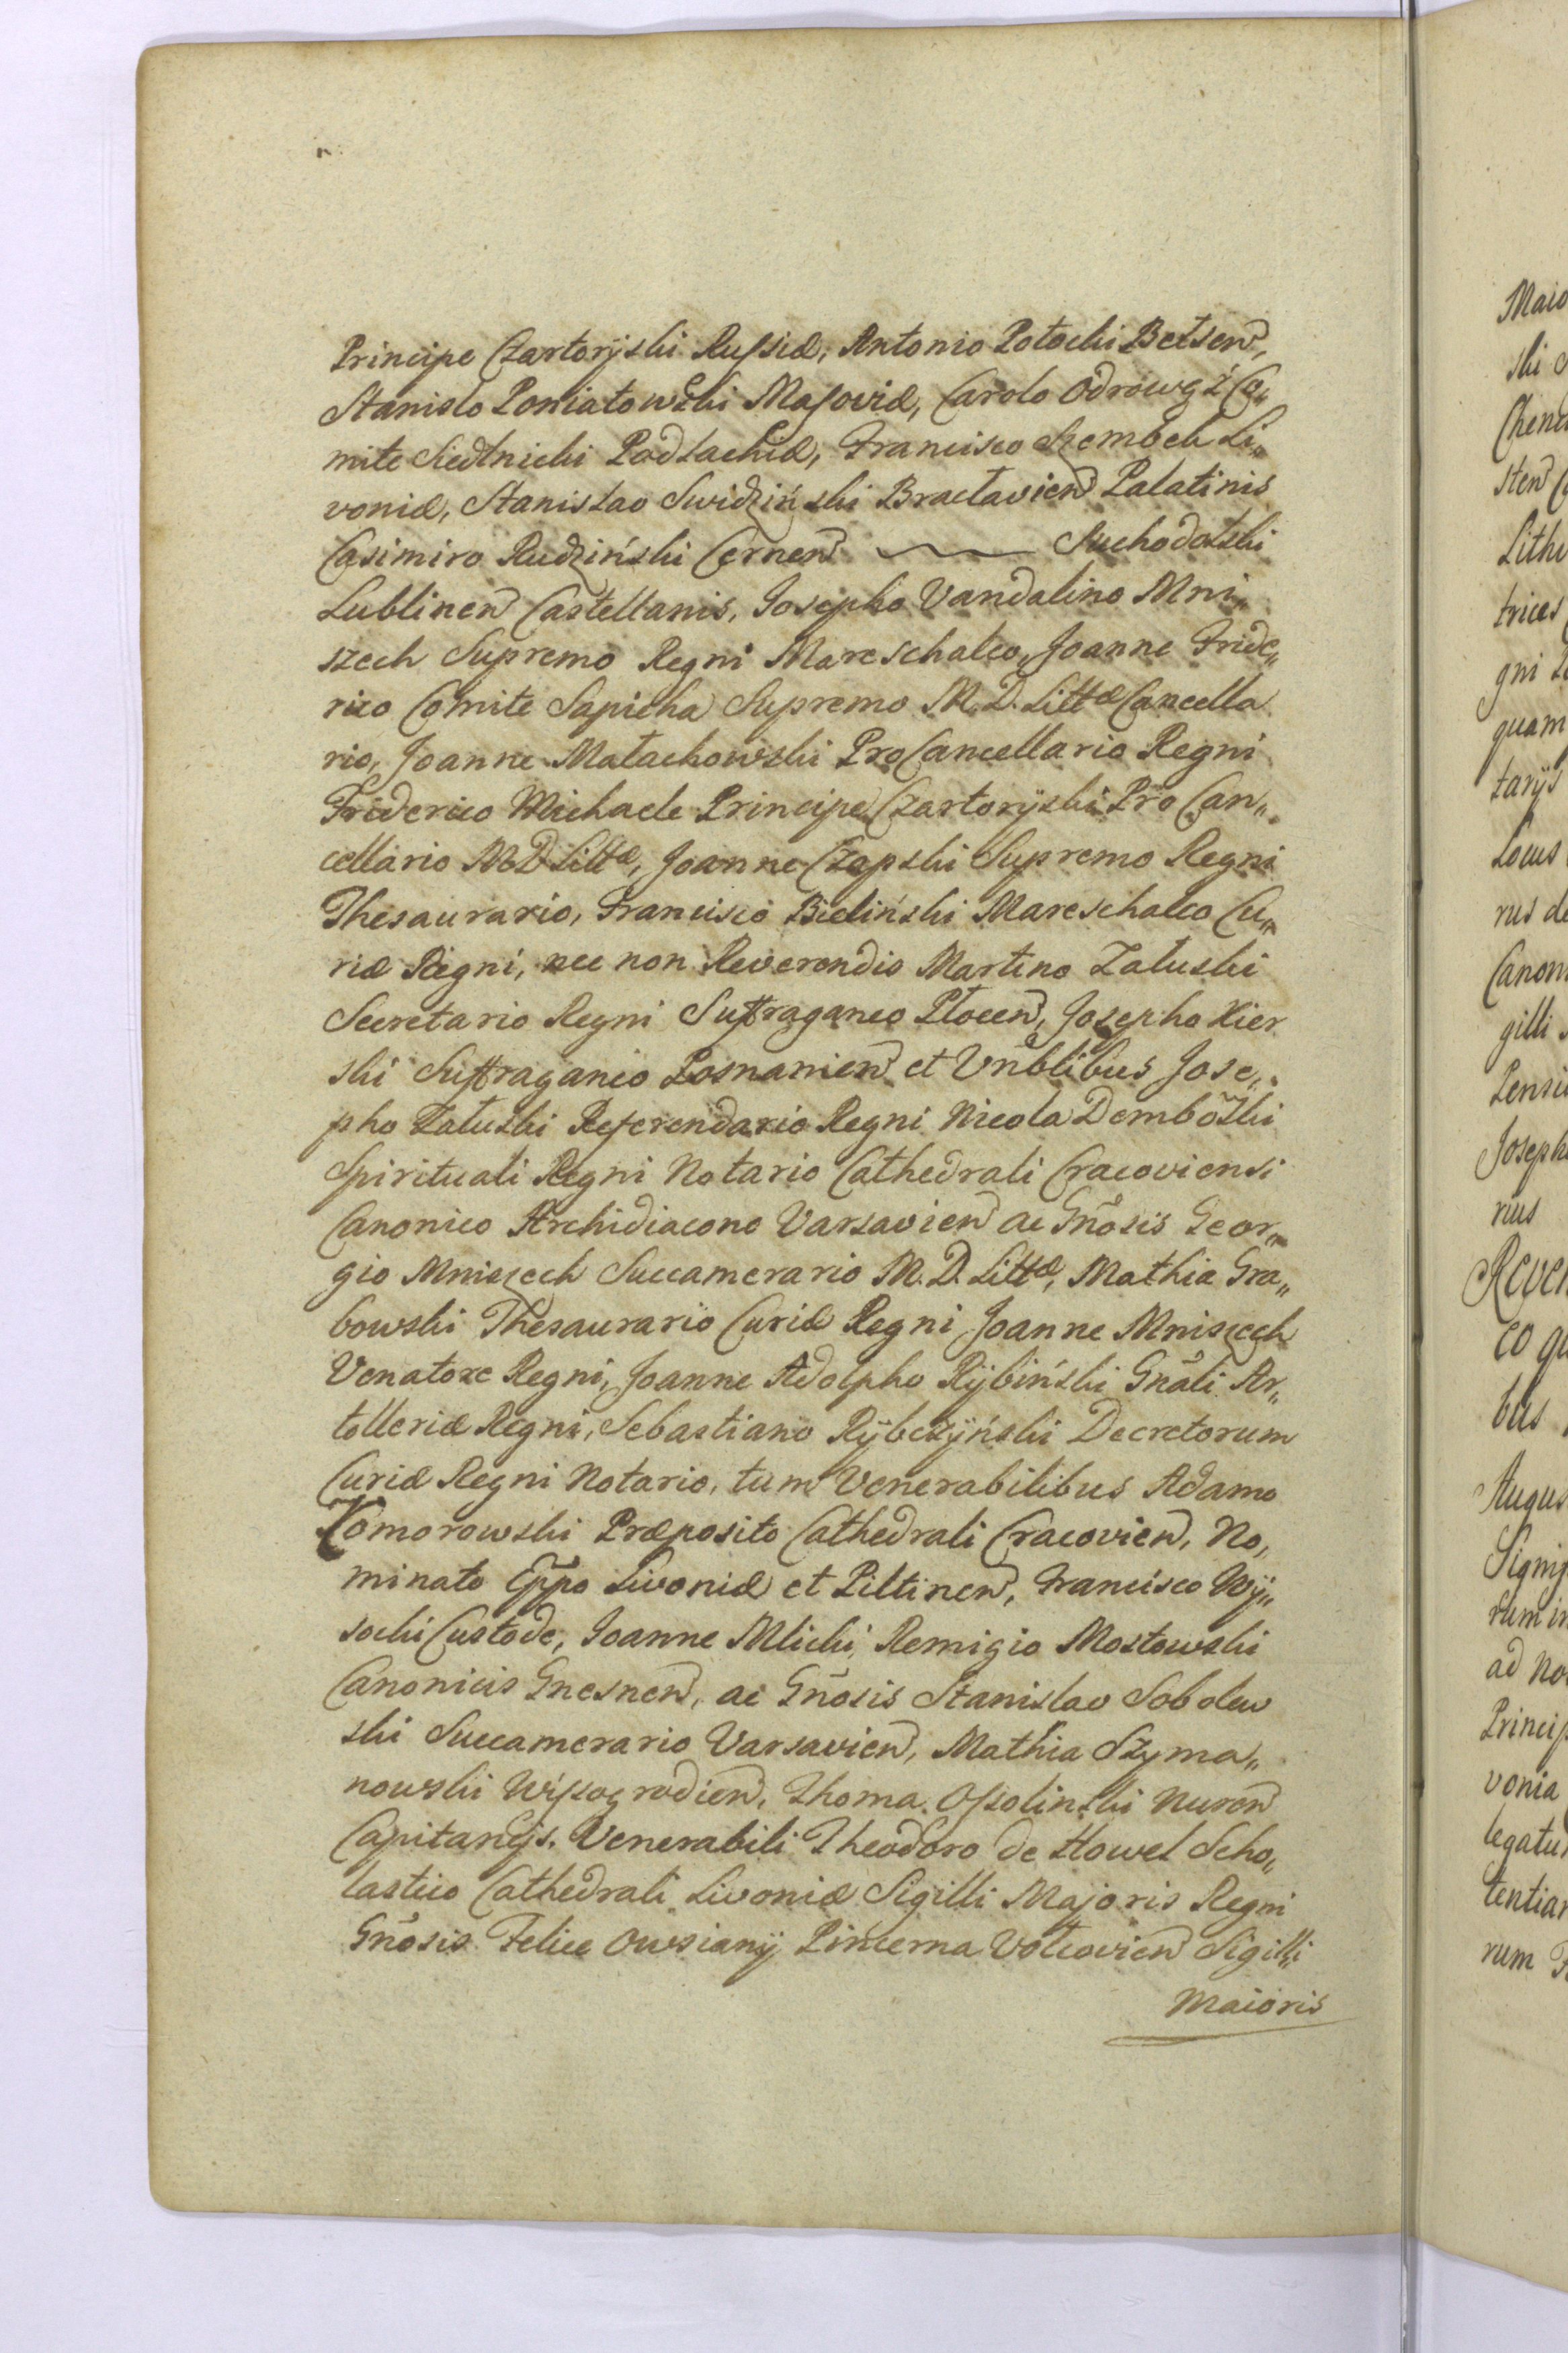 Principe Czartoryski Russiæ, Antonio Potocki Belsen,
Stanislo Poniatowski Masoviæ, Carolo Odrowąż Co„
mite Siedlnicki Podlachiæ, Francisco Szembek Li„
voniæ, Stanislao Swidziński Braclavien Palatinis
Casimiro Rudziński Cernen Suchodolski
Lublinen Castellanis, Josepho Vandalino Mni„
szech Supremo Regni Mareschalco, Joanne Fride„
rico Comite Sapieha Supremo M. D. Littæ Cancella
rio, Joanne Małachowski ProCancellario Regni
Friderico Michaele Principe Czartoryski Pro Can„
cellario M D Littæ, Joanne Czapski Supremo Regni
Thesaurario, Francisco Bieliński Mareschalco Cu„
riæ Regni, nec non Reverendis Martino Załuski
Secretario Regni Suffraganeo Płocen, Josepho Kier
ski Suffraganeo Posnanien et Vnblibus Jose„
pho Załuski Referendario Regni Nicola Dembowski
Spirituali Regni Notario Cathedrali Cracoviensi
Canonico Archidiacono Varsavien ac Gnosis Geor„
gio Mniszech Succamerario M. D. Littæ, Mathia Gra„
bowski Thesaurario Curiæ Regni Joanne Mniszech
Venatore Regni, Joanne Adolpho Rÿbiński Gnali Ar„
tolleriæ Regni, Sebastiano Rÿbczÿński Decretorum
Curiæ Regni Notario, tum Venerabilibus Adamo
Komorowski Præposito Cathedrali Cracovien, No„
minato Eppo Livoniæ et Piltinen, Francisco Wÿ„
socki Custode, Joanne Mlicki, Remigio Mostowski
Canonicis Gnesnen, ac Gnosis Stanislao Sobolew
ski Succamerario Varsavien, Mathia Szyma„
nowski Wyssogrodien, Thoma Ossolinski Nuren
Capitaneis. Venerabili Theodoro de Howel Scho„
lastico Cathedrali Livoniæ Sigilli Majoris Regni
Gnosis Felice Owsianÿ Pincerna Volcovien Sigilli
Maioris
Maio
ski
Chenc
sten
Lithu
trices
gni
quam
tarÿs
Locus
rus de
Canon
gilli
Pensi
Joseph
rius
Rever
co qu
bus
Augus
Signi
rum in
ad no
Princip
vonia
legatu
tentiar
rum